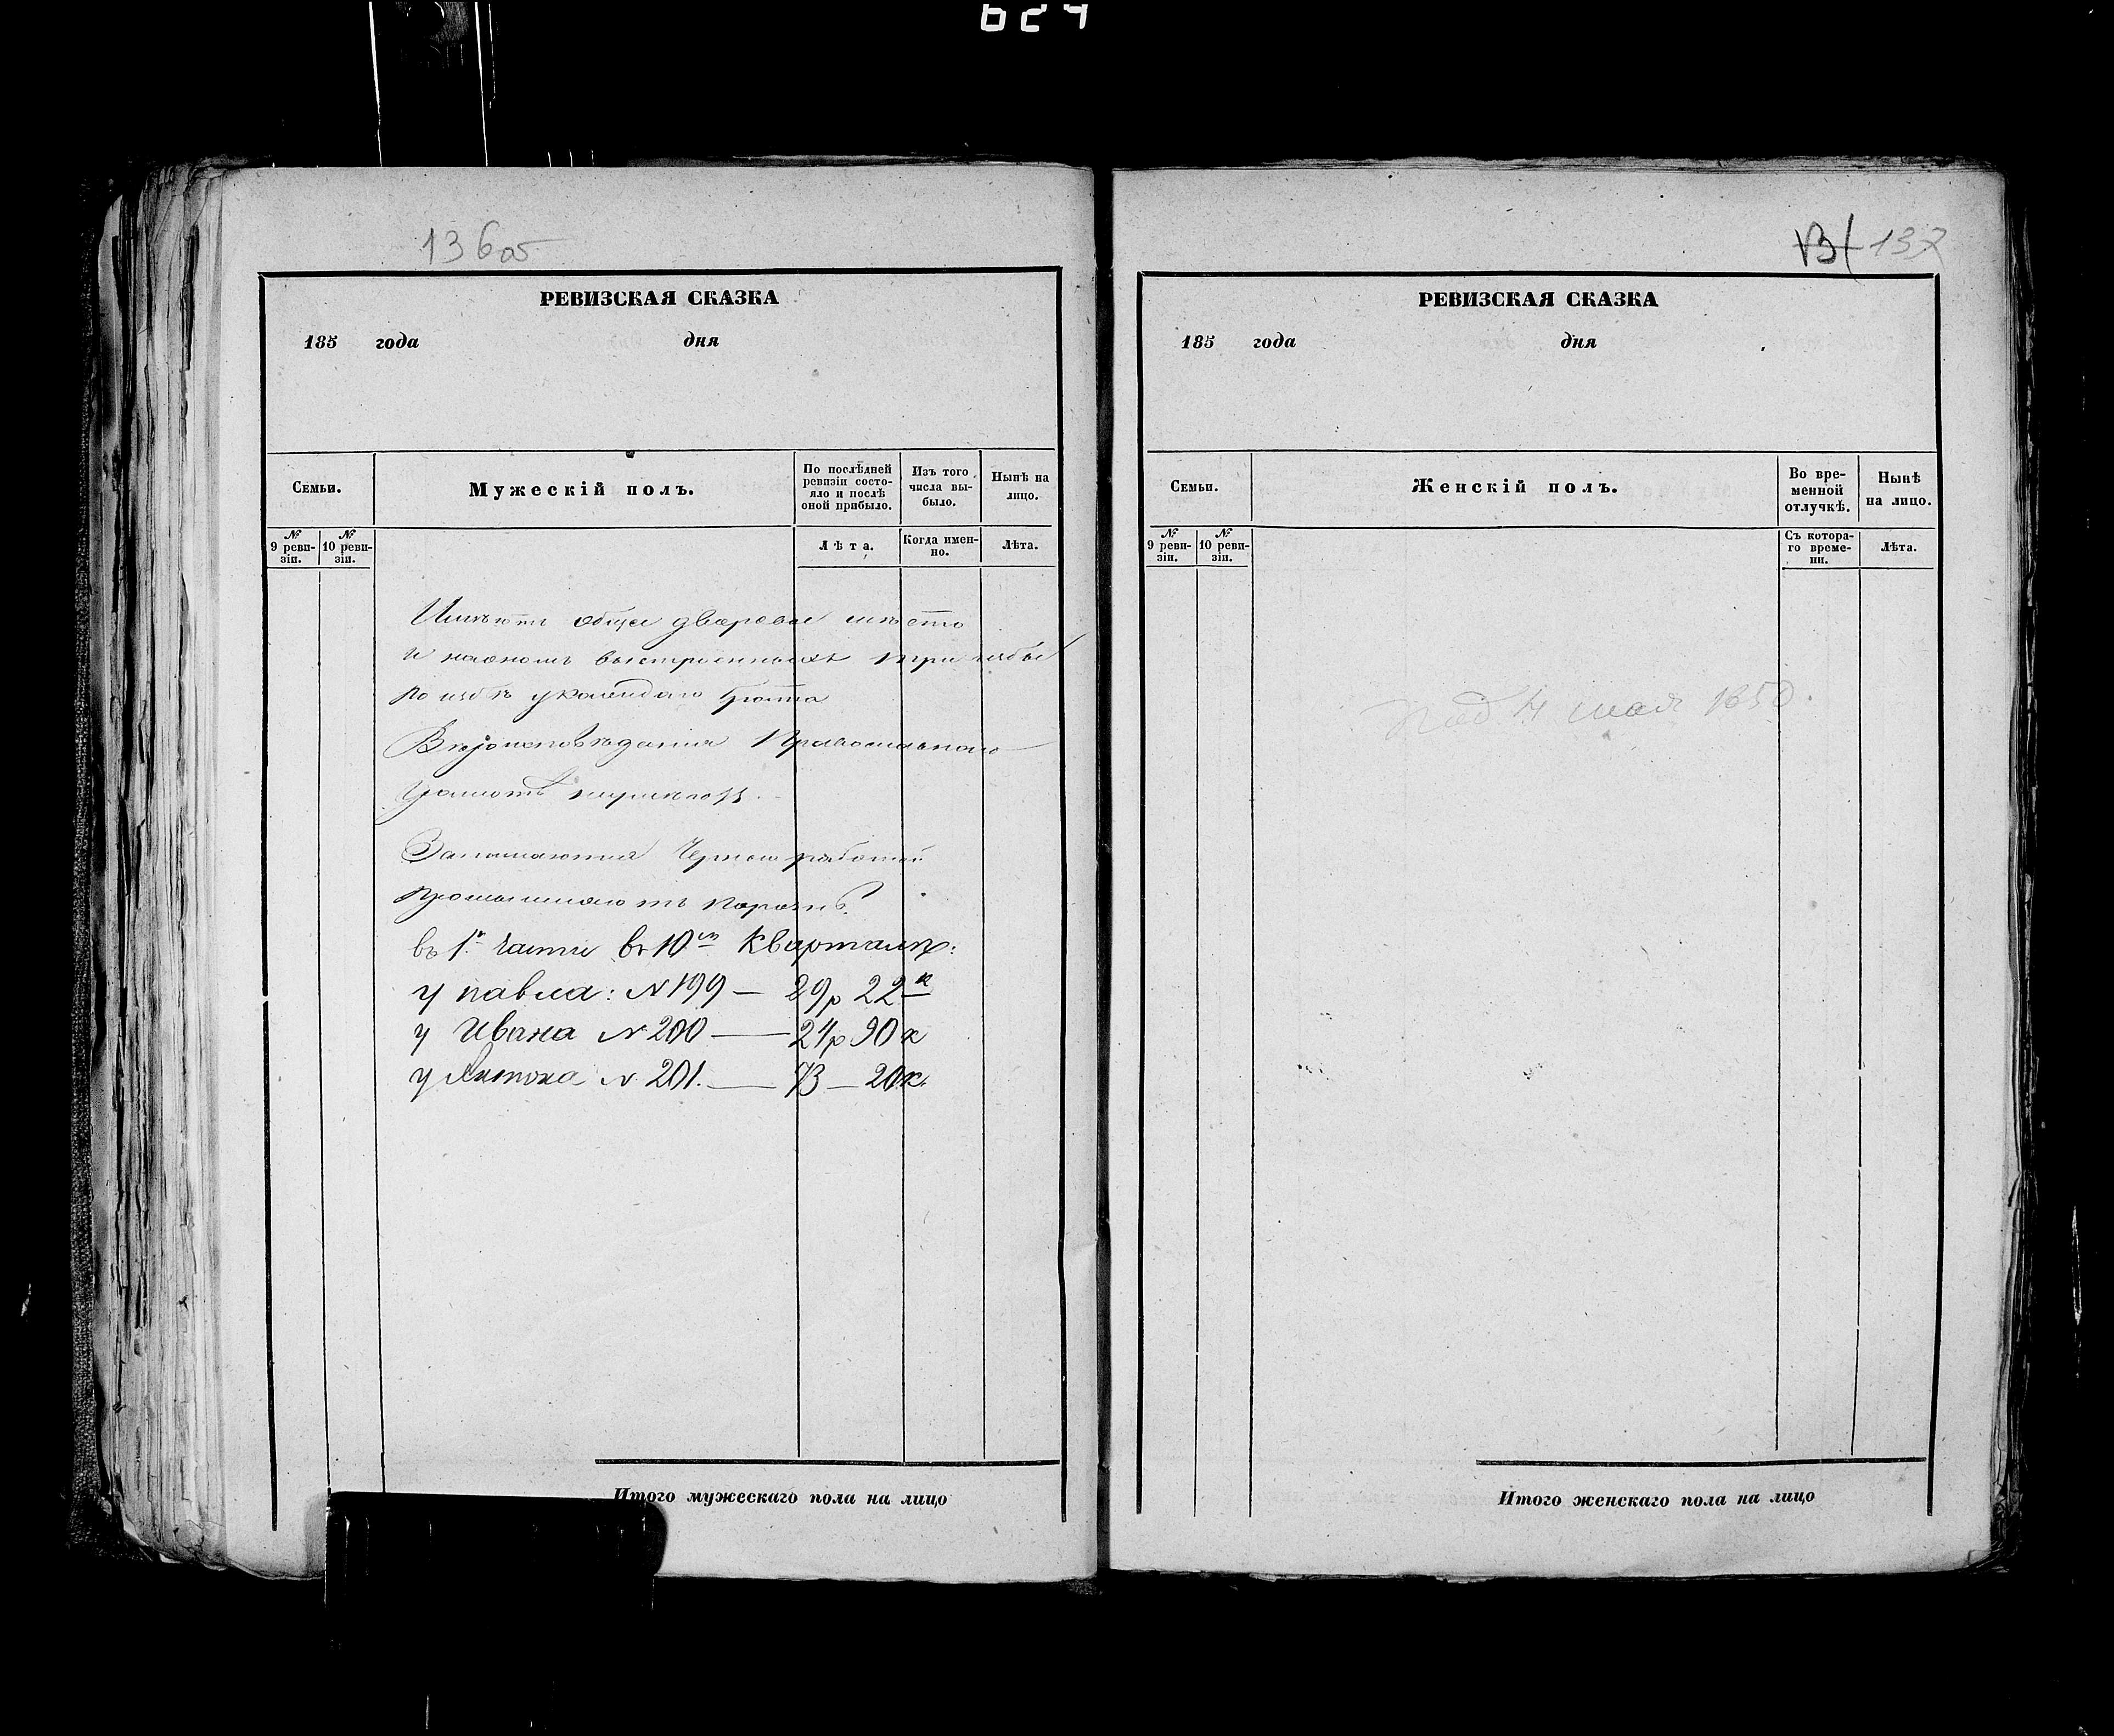 624
136об
РЕВИЗСКАЯ СКАЗКА
185 года дня
Семьи.
Мужескій полъ.
По послѣдней ревизіи состояло и послѣ оной прибыло.
Изъ того числа выбыло.
Нынѣ на лицо.
№ 9 ревизіи.
№ 10 ревизіи.
Лѣта.
Когда именно.
Лѣта.
Имѣютъ общее дворовое мѣсто
и на ономъ выстроенныхъ три избы
по избѣ у каждаго брата
Вѣроисповѣданія Православнаго
Грамотѣ
Занимаются Черною работой
въ 1й части въ 10м Кварталѣ:
у павла: № 199 — 29р 22к
у Ивана № 200 — 24р 90к
у Антона № 201. — 73 — 20к.
Итого мужескаго пола на лицо
137
РЕВИЗСКАЯ СКАЗКА
185 года дня
Семьи.
Женскій полъ.
Во временной отлучкѣ.
Нынѣ на лицо.
№ 9 ревизіи.
№ 10 ревизіи.
Съ котораго времени.
Лѣта.
под. 4 мая 1850.
Итого женскаго пола на лицо